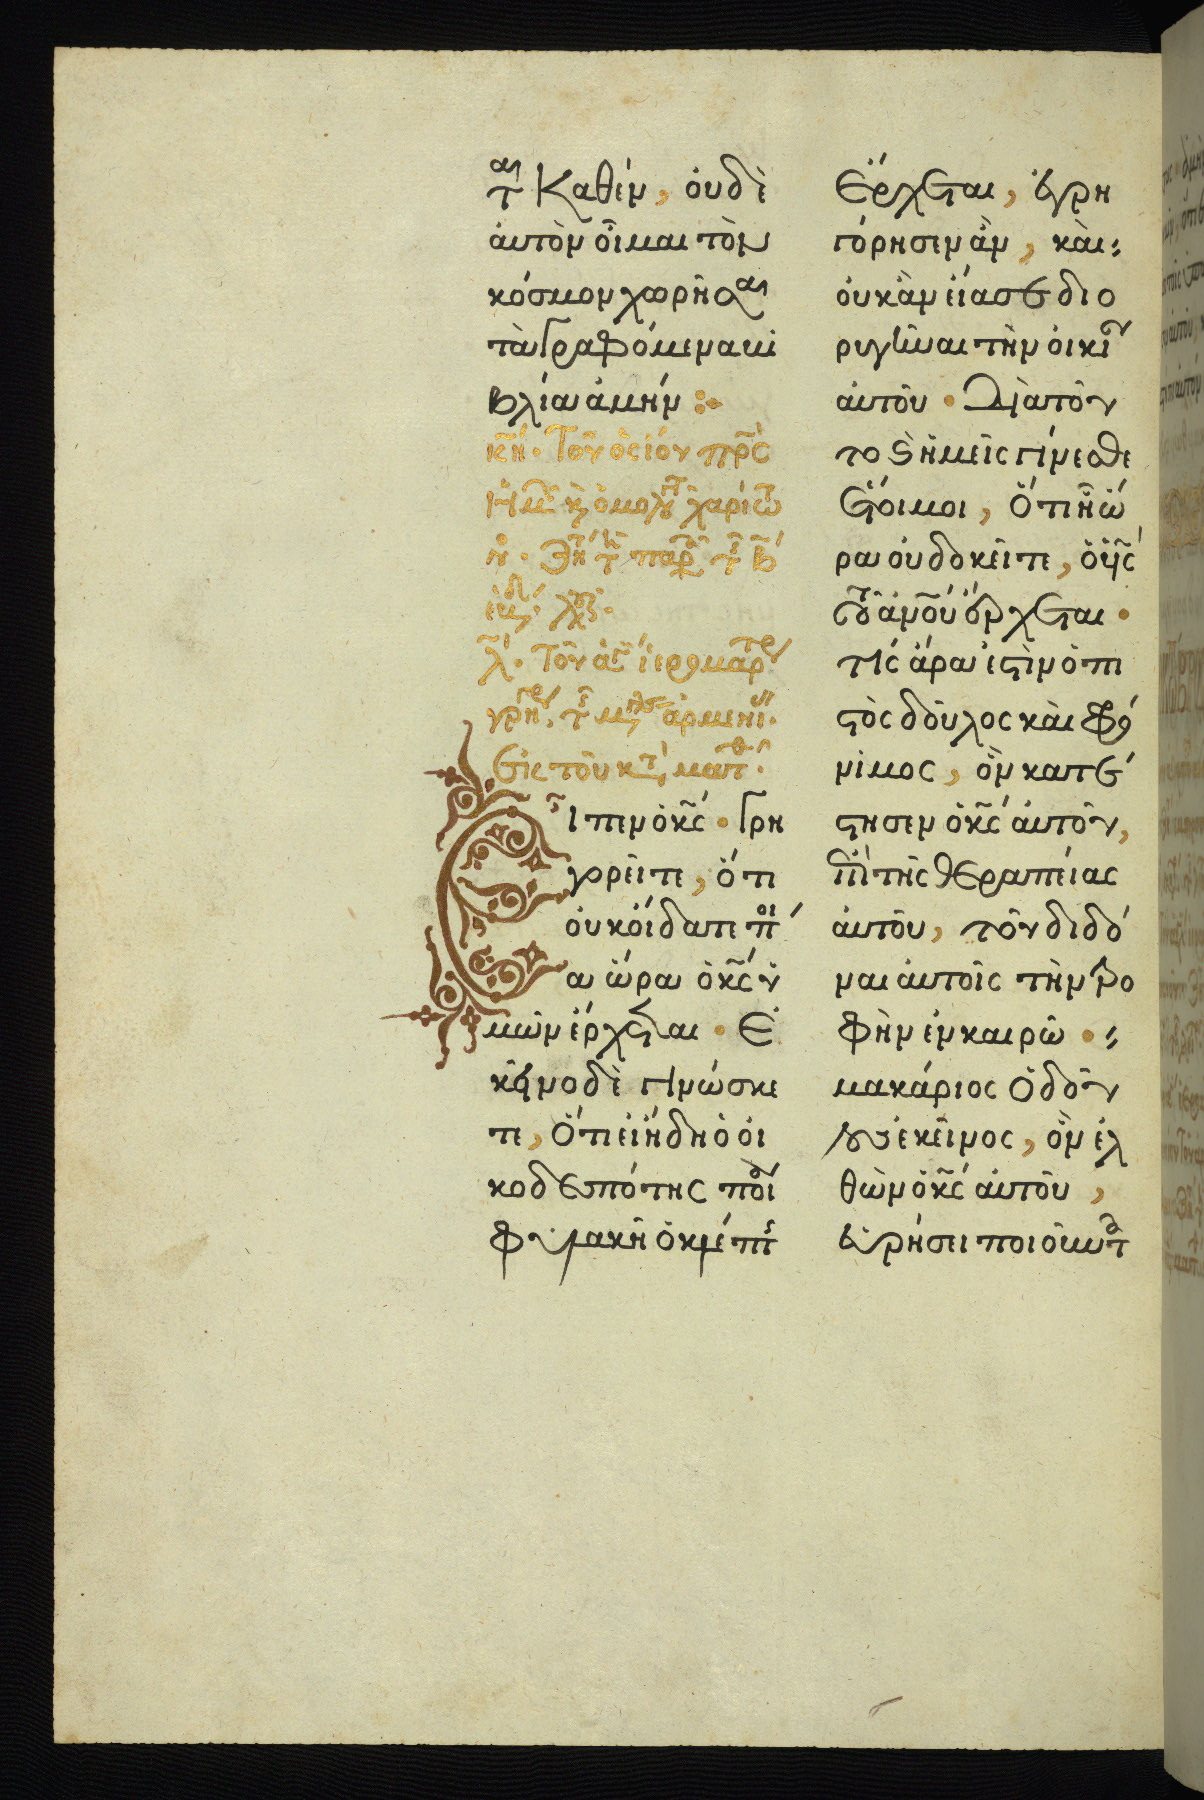 ται καθέν, ουδὲ
ἀυτὸν οἶμαι τὸν
κόσμον χωρῆσαι
τὰ γραφόμενα βι
βλία ἀμήν :·
κη. Τοῦ ὁσίου πρς
ἡμ κ ὁμολογ χαρίτω
λ. Τοῦ ἁγ ἱερομαρτ
γρηγ. τ μγλ ἀρμενι.
Ἐκ τοῦ κτ ματθ.
Εἶπεν ὁ κς · Γρη
γορεῖτε, ὅτι
ουκ οἴδατε ποί
α ὥρα ὁ κς ὑ
μῶν ἔρχεται · Ἐ
κεῖνο δὲ γινώσκε
τε, Ὅτι εἰ ἤδη ὁ οἰ
κοδεσπότης ποίᾳ
φυλακῆ ὁ κλέπτης
ἔρχεται, ἐγρη
γόρησεν ἂν, καὶ
ουκ ἂν εἴασε διο
ρυγῆναι τὴν οἰκίαν
ἀυτοῦ · Διατοῦ
το καὶ ἡμεῖς γίνεσθε
ἕτοιμοι, Ὅτι ἧ ὥ
ρα ου δοκεῖτε, ὁ υἱς
τοῦ ἀνου ἔρχεται ·
Τίς ἄρα ἐστὶν ὁ πι
στὸς δοῦλος καὶ φρό
νιμος, ὃν κατέ
στησεν ὁ κς ἀυτοῦ,
ἐπὶ τῆς θεραπείας
ἀυτοῦ, τοῦ διδό
ναι ἀυτοῖς τὴν τρο
φὴν ἐν καιρῶ ·
μακάριος ὁ δοῦ
λος ἐκεῖνος, ὃν ἐλ
θὼν ὁ κς ἀυτοῦ,
ευρήσει ποιοῦντα